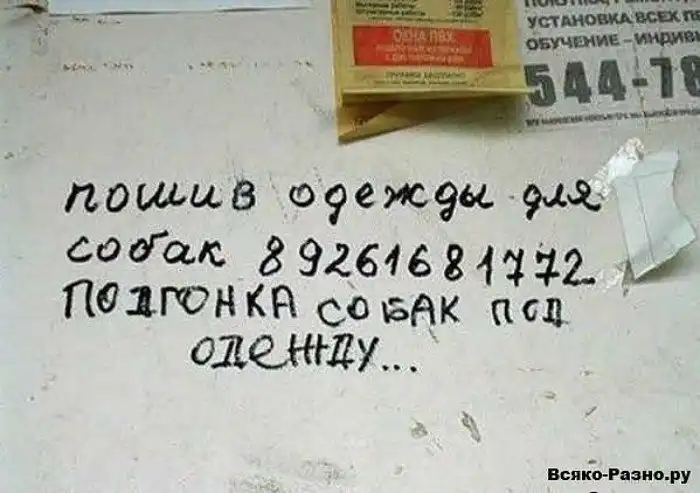 ОКНА ПВХ
УСТАНОВКА ВСЕХ
ОБУЧЕНИЕ - ИНДИВИ
544-78
пошив одежды для
собак 89261681772
ПОДГОНКА СОБАК ПОД
ОДЕЖДУ...
Всяко-Разно.ру